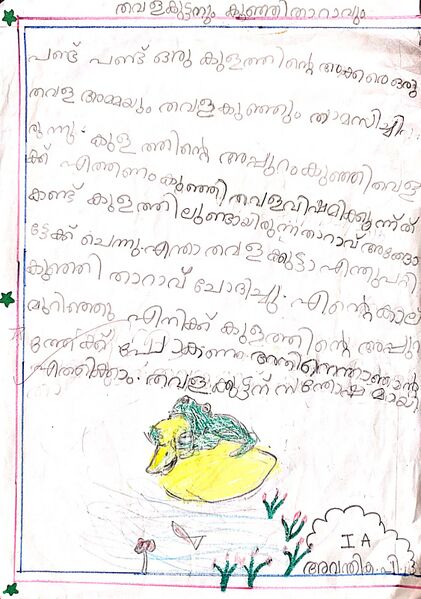 തവളകുട്ടനും കുഞ്ഞിതാറാവും
പണ്ട് പണ്ട് ഒരു കുളത്തിന്റെ അക്കരെ ഒരു
തവള അമ്മയും തവളകുഞ്ഞും താമസിച്ചി
രുന്നു. കുളത്തിന്റെ അപ്പുറം കുഞ്ഞിതവള
ക്ക് എത്തണം കുഞ്ഞിതവള വിഷമിക്കുന്നത്
കണ്ട് കുളത്തിലുണ്ടായിരുന്ന താറാവ് അങ്ങോ
ട്ടേക്ക് ചെന്നു. എന്താ തവളക്കുട്ടാ എന്തുപറ്റി
കുഞ്ഞി താറാവ് ചോദിച്ചു. എന്റെ കാല
മുറിഞ്ഞു എനിക്ക് കുളത്തിന്റെ അപ്പുറ
ത്തേക്ക് പോകണം അതിനെന്താ ഞാൻ
എത്തിക്കാം. തവളക്കുട്ടന് സന്തോഷമായി
I A
അവന്തിക. പി.